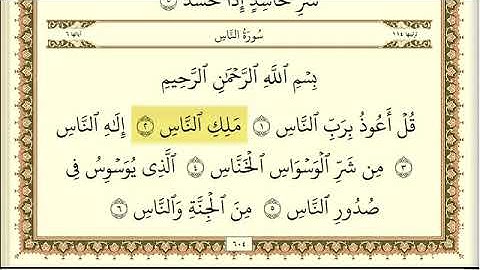 شَرِّ حَاسِدٍ إِذَا حَسَدَ ٥
ترتيبها ١١٤ سُورَةُ النَّاسِ آياتها ٦
بِسْمِ ٱللَّهِ ٱلرَّحْمَٰنِ ٱلرَّحِيمِ
قُلْ أَعُوذُ بِرَبِّ ٱلنَّاسِ ١ مَلِكِ ٱلنَّاسِ ٢ إِلَٰهِ ٱلنَّاسِ
٣ مِن شَرِّ ٱلْوَسْوَاسِ ٱلْخَنَّاسِ ٤ ٱلَّذِى يُوَسْوِسُ فِى
صُدُورِ ٱلنَّاسِ ٥ مِنَ ٱلْجِنَّةِ وَٱلنَّاسِ ٦
٦٠٤